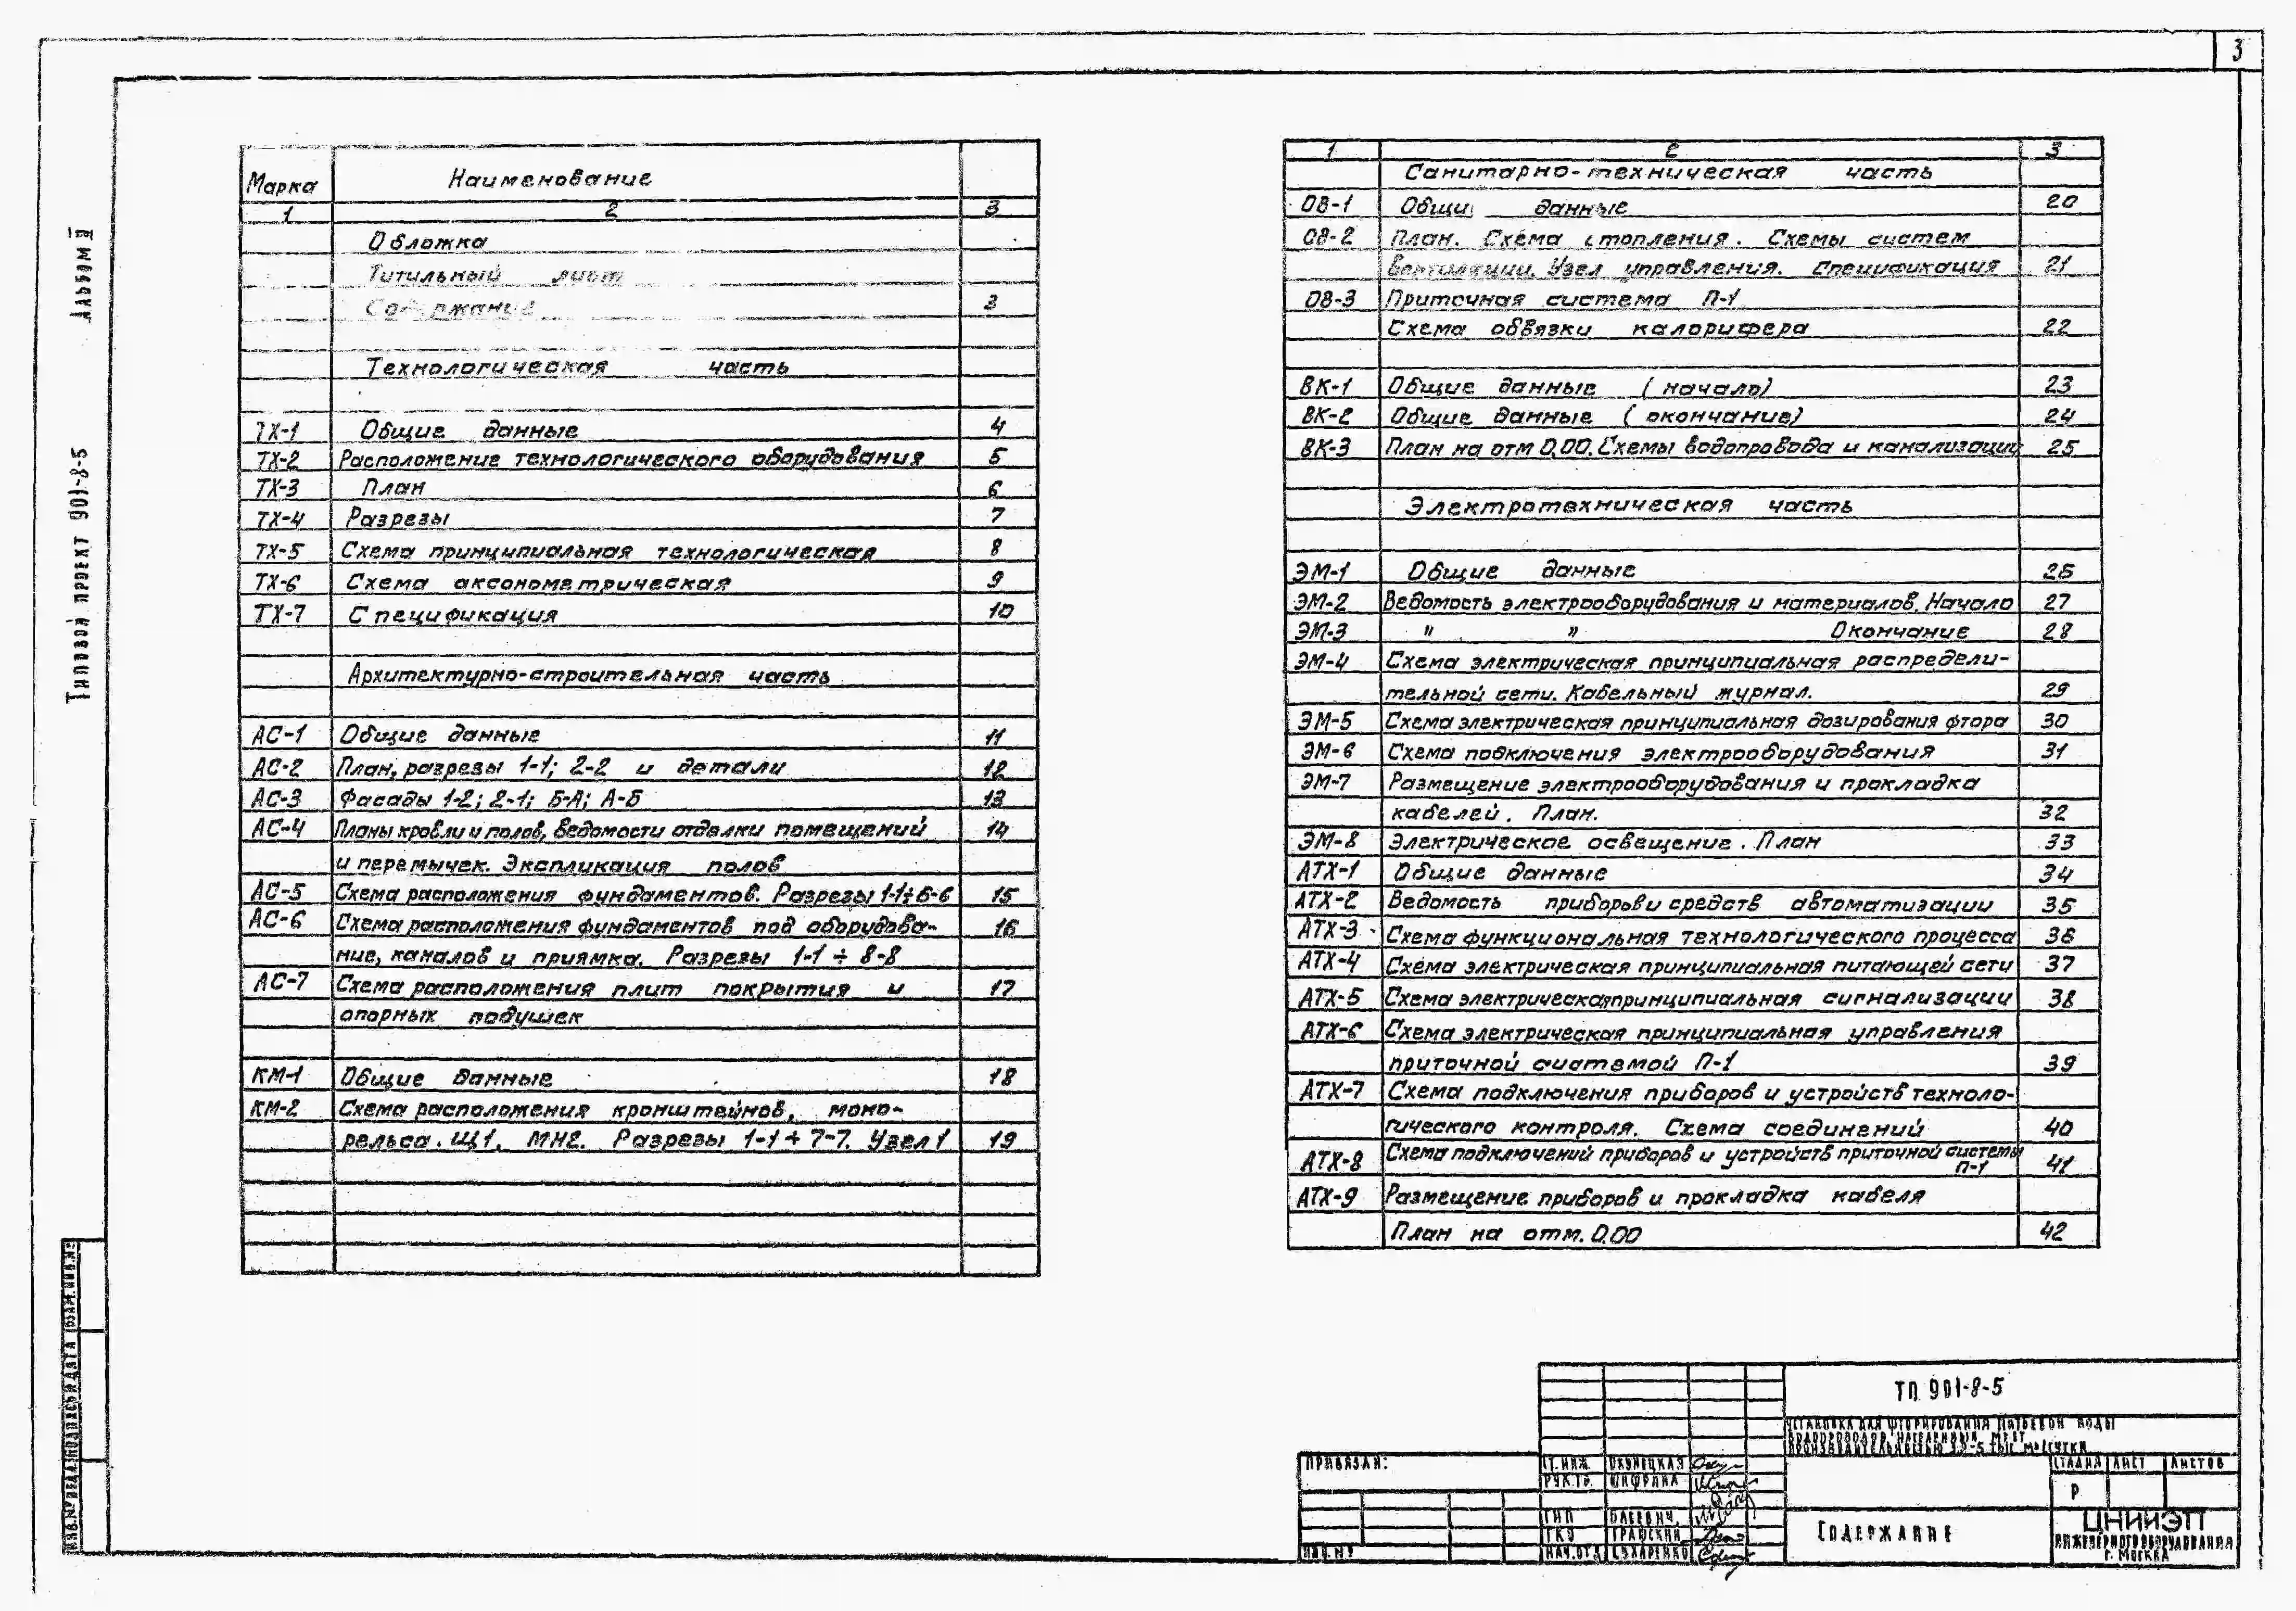 3
Альбом II
Типовой проект 901-8-5
Марка Наименование
1 2 3
Обложка
Титульный лист
Содержание 3
Технологическая часть
ТХ-1 Общие данные 4
ТХ-2 Расположение технологического оборудования 5
ТХ-3 План 6
ТХ-4 Разрезы 7
ТХ-5 Схема принципиальная технологическая 8
ТХ-6 Схема аксонометрическая 9
ТХ-7 Спецификация 10
Архитектурно-строительная часть
АС-1 Общие данные 11
АС-2 План, разрезы 1-1; 2-2 и детали 12
АС-3 Фасады 1-2; 2-1; Б-А; А-Б 13
АС-4 Планы кровли и полов, Ведомости отделки помещений 14
и перемычек. Экспликация полов
АС-5 Схема расположения фундаментов. Разрезы 1-1÷6-6 15
АС-6 Схема расположения фундаментов под оборудова- 16
ние, каналов и приямка. Разрезы 1-1 ÷ 8-8
АС-7 Схема расположения плит покрытия и 17
опорных подушек
КМ-1 Общие данные 18
КМ-2 Схема расположения кронштейнов, моно-
рельса. Щ1, МН2. Разрезы 1-1 ÷ 7-7. Узел 1 19
1 2 3
Санитарно-техническая часть
ОВ-1 Общи данные 20
ОВ-2 План. Схема отопления. Схемы систем
вентиляции. Узел управления. Спецификация 21
ОВ-3 Приточная система П-1
Схема обвязки калорифера 22
ВК-1 Общие данные (начало) 23
ВК-2 Общие данные (окончание) 24
ВК-3 План на отм 0,00. Схемы водопровода и канализации 25
Электротехническая часть
ЭМ-1 Общие данные 26
ЭМ-2 Ведомость электрооборудования и материалов. Начало 27
ЭМ-3 " " Окончание 28
ЭМ-4 Схема электрическая принципиальная распредели-
тельной сети. Кабельный журнал. 29
ЭМ-5 Схема электрическая принципиальная дозирования фтора 30
ЭМ-6 Схема подключения электрооборудования 31
ЭМ-7 Размещение электрооборудования и прокладка
кабелей. План. 32
ЭМ-8 Электрическое освещение. План 33
АТХ-1 Общие данные 34
АТХ-2 Ведомость приборов и средств автоматизации 35
АТХ-3 Схема функциональная технологического процесса 36
АТХ-4 Схема электрическая принципиальная питающей сети 37
АТХ-5 Схема электрическая принципиальная сигнализации 38
АТХ-6 Схема электрическая принципиальная управления
приточной системой П-1 39
АТХ-7 Схема подключения приборов и устройств техноло-
гического контроля. Схема соединений 40
АТХ-8 Схема подключений приборов и устройств приточной системы
П-1 41
АТХ-9 Размещение приборов и прокладка кабеля
План на отм. 0.00 42
ТП 901-8-5
Установка для фторирования питьевой воды
водопроводов населенных мест
производительностью
Привязан:
Ст. инж. Окунецкая
Рук. гр. Шифрина
ГИП
ГКО Графский
Нач. отд Сухаренко
Инв. №
Стадия Лист Листов
Р
Содержание
ЦНИИЭП
инженерного оборудования
г. Москва
Инв. № подл. Подпись и дата Взам. инв. №